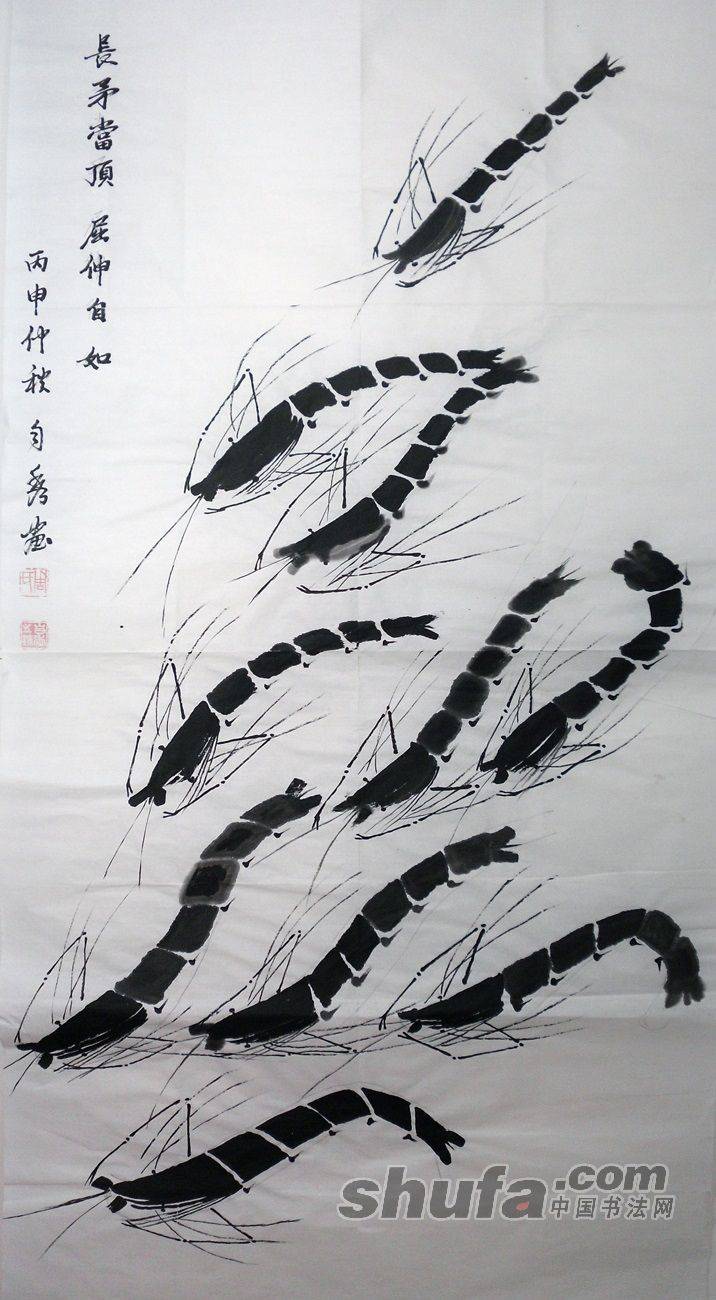 長矛當頂 屈伸自如
丙申仲秋 自秀畫
shufa.com
中国书法网